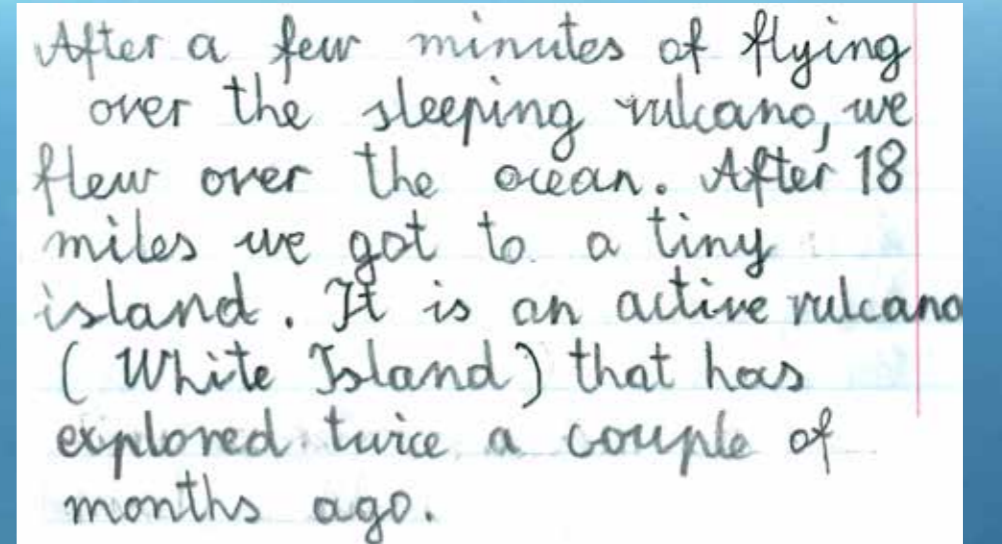 After a few minutes of flying
over the sleeping vulcano, we
flew over the ocean. After 18
miles we got to a tiny
island. It is an active vulcano
( White Island) that has
explored twice a couple of
months ago.